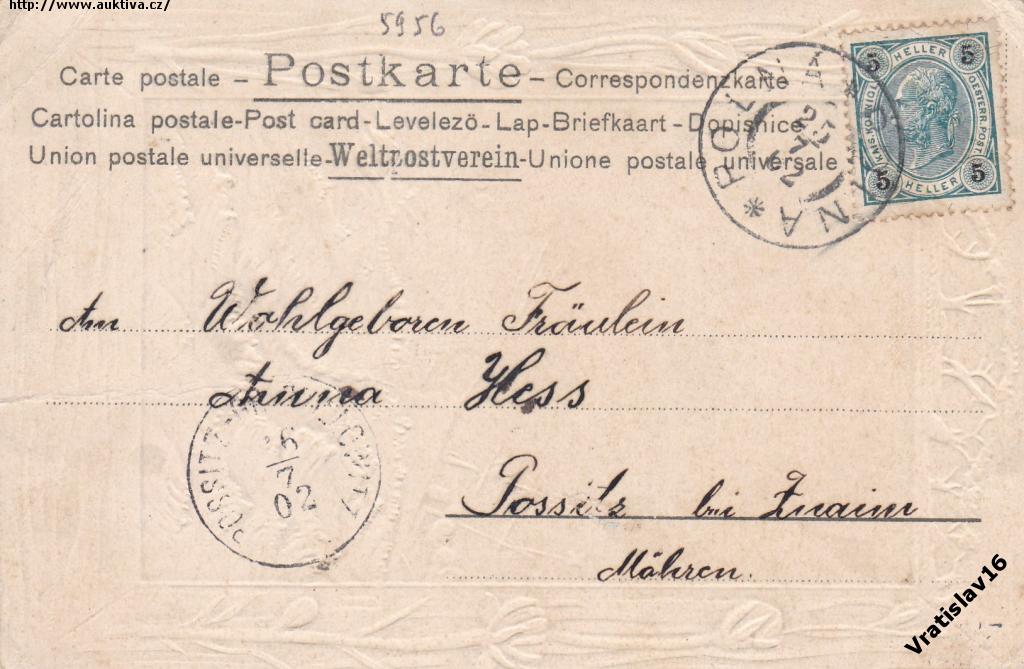 http://www.auktiva.cz/
5956
Carte postale – Postkarte – Correspondenzkarte
Cartolina postale-Post card-Levelezö-Lap-Briefkaart-Dopisnice
Union postale universelle-Weltpostverein-Unione postale universale
5 HELLER 5
KAIS. KÖNIGL. OESTERR. POST
5 HELLER 5
POLNA
25
7
02
An Wohlgeboren Fräulein
Anna Hess
Possitz bei Znaim
Mähren.
POSSITZ
26/7
02
Vratislav16